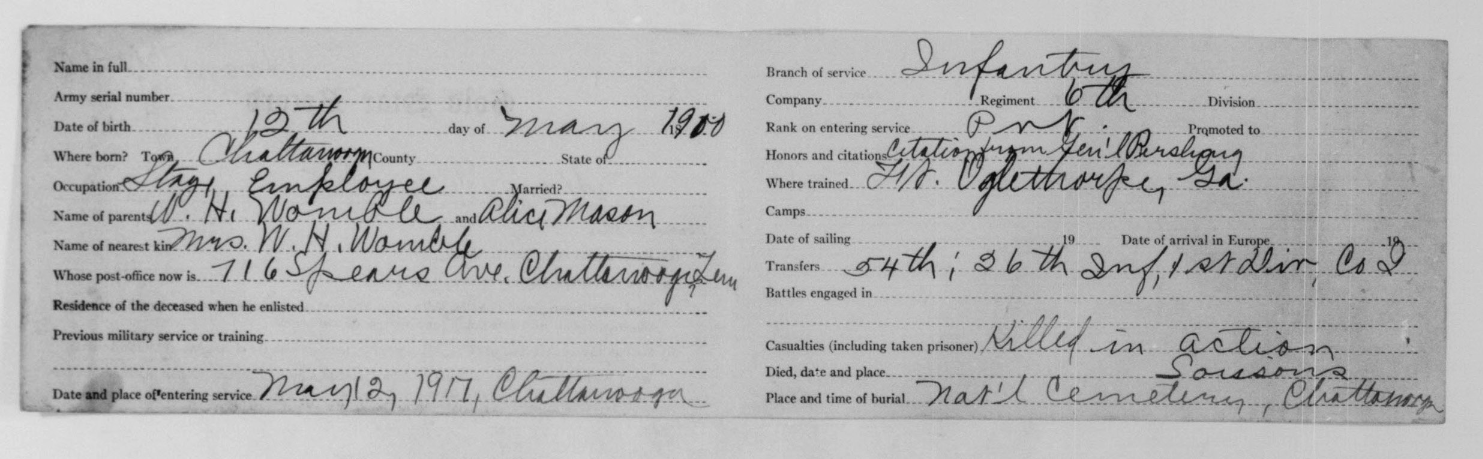 Name in full
Army serial number
Date of birth 12th day of May 1900
Where born? Town Chattanooga County State of
Occupation Stage Employee Married?
Name of parents W. H. Womble and Alice Mason
Name of nearest kin Mrs. W. H. Womble
Whose post-office now is 716 Spears Ave. Chattanooga, Tenn
Residence of the deceased when he enlisted
Previous military service or training
Date and place of entering service May 12, 1917, Chattanooga
Branch of service Infantry
Company Regiment 6th Division
Rank on entering service Pvt. Promoted to
Honors and citations Citation from Gen'l Pershing
Where trained Ft. Oglethorpe, Ga.
Camps
Date of sailing 19 Date of arrival in Europe 19
Transfers 54th; 26th Inf, 1st Div, Co I
Battles engaged in
Casualties (including taken prisoner) Killed in action
Died, date and place Soissons
Place and time of burial Nat'l Cemetery, Chattanooga